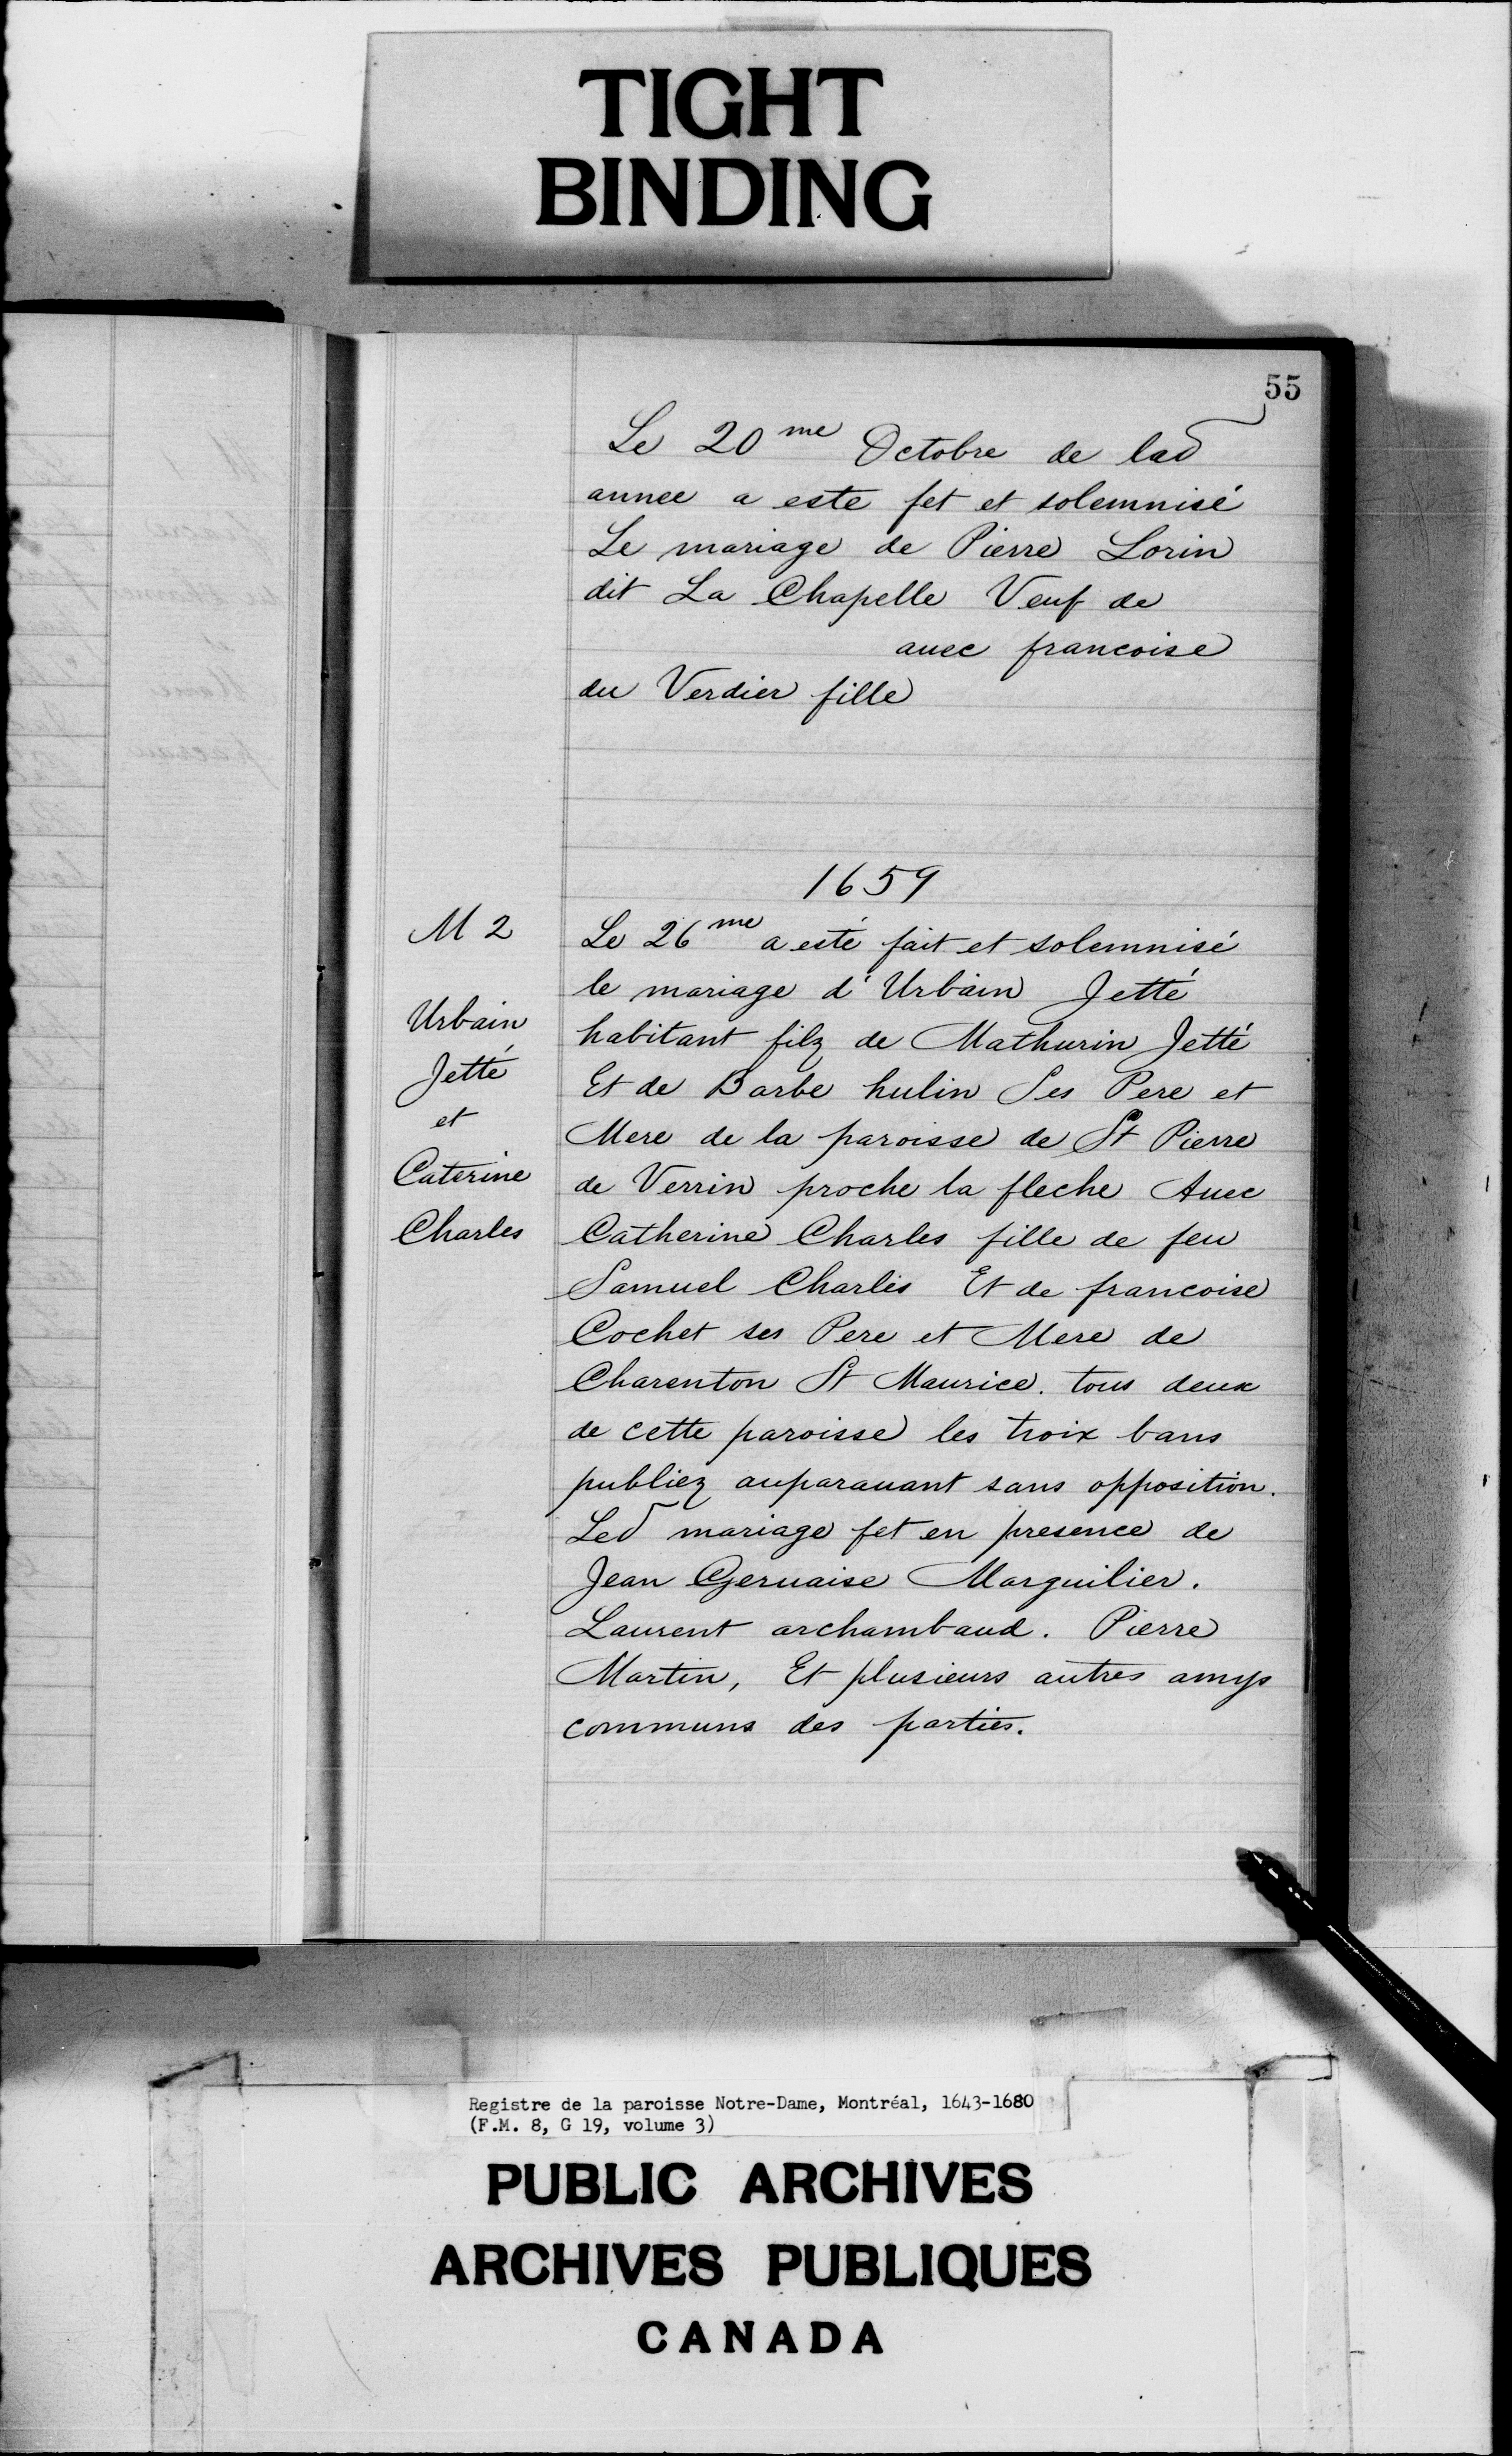 TIGHT
BINDING
55
Le 20me Octobre de lad
annee a este fet et solemnisé
Le mariage de Pierre Lorin
dit La Chapelle Veuf de
auec francoise
du Verdier fille
1659
M 2
Urbain
Jetté
et
Caterine
Charles
Le 26me a esté fait et solemnisé
le mariage d'Urbain Jetté
habitant filz de Mathurin Jetté
Et de Barbe hulin Ses Pere et
Mere de la paroisse de St Pierre
de Verrin proche la fleche Auec
Catherine Charles fille de feu
Samuel Charles Et de francoise
Cochet ses Pere et Mere de
Charenton St Maurice. tous deux
de cette paroisse les troix bans
publiez auparauant sans opposition.
Led mariage fet en presence de
Jean Geruaise Marguilier.
Laurent archambaud. Pierre
Martin, Et plusieurs autres amys
communs des parties.
Registre de la paroisse Notre-Dame, Montréal, 1643-1680
(F.M. 8, G 19, volume 3)
PUBLIC ARCHIVES
ARCHIVES PUBLIQUES
CANADA